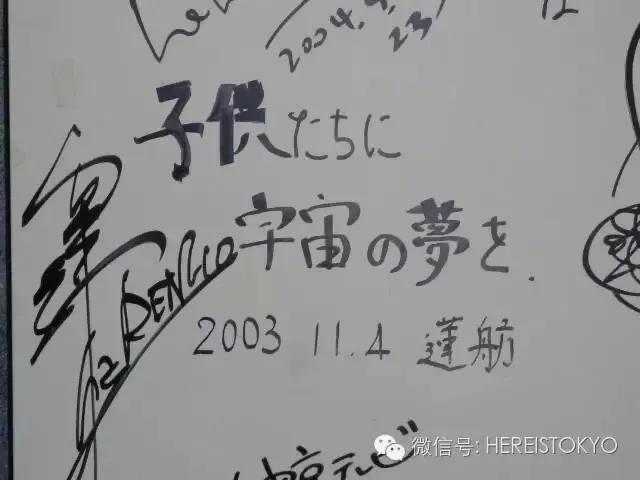 2004.4.23
子供たちに
宇宙の夢を.
RENHO
2003 11.4 蓮舫
京テレビ
微信号: HEREISTOKYO